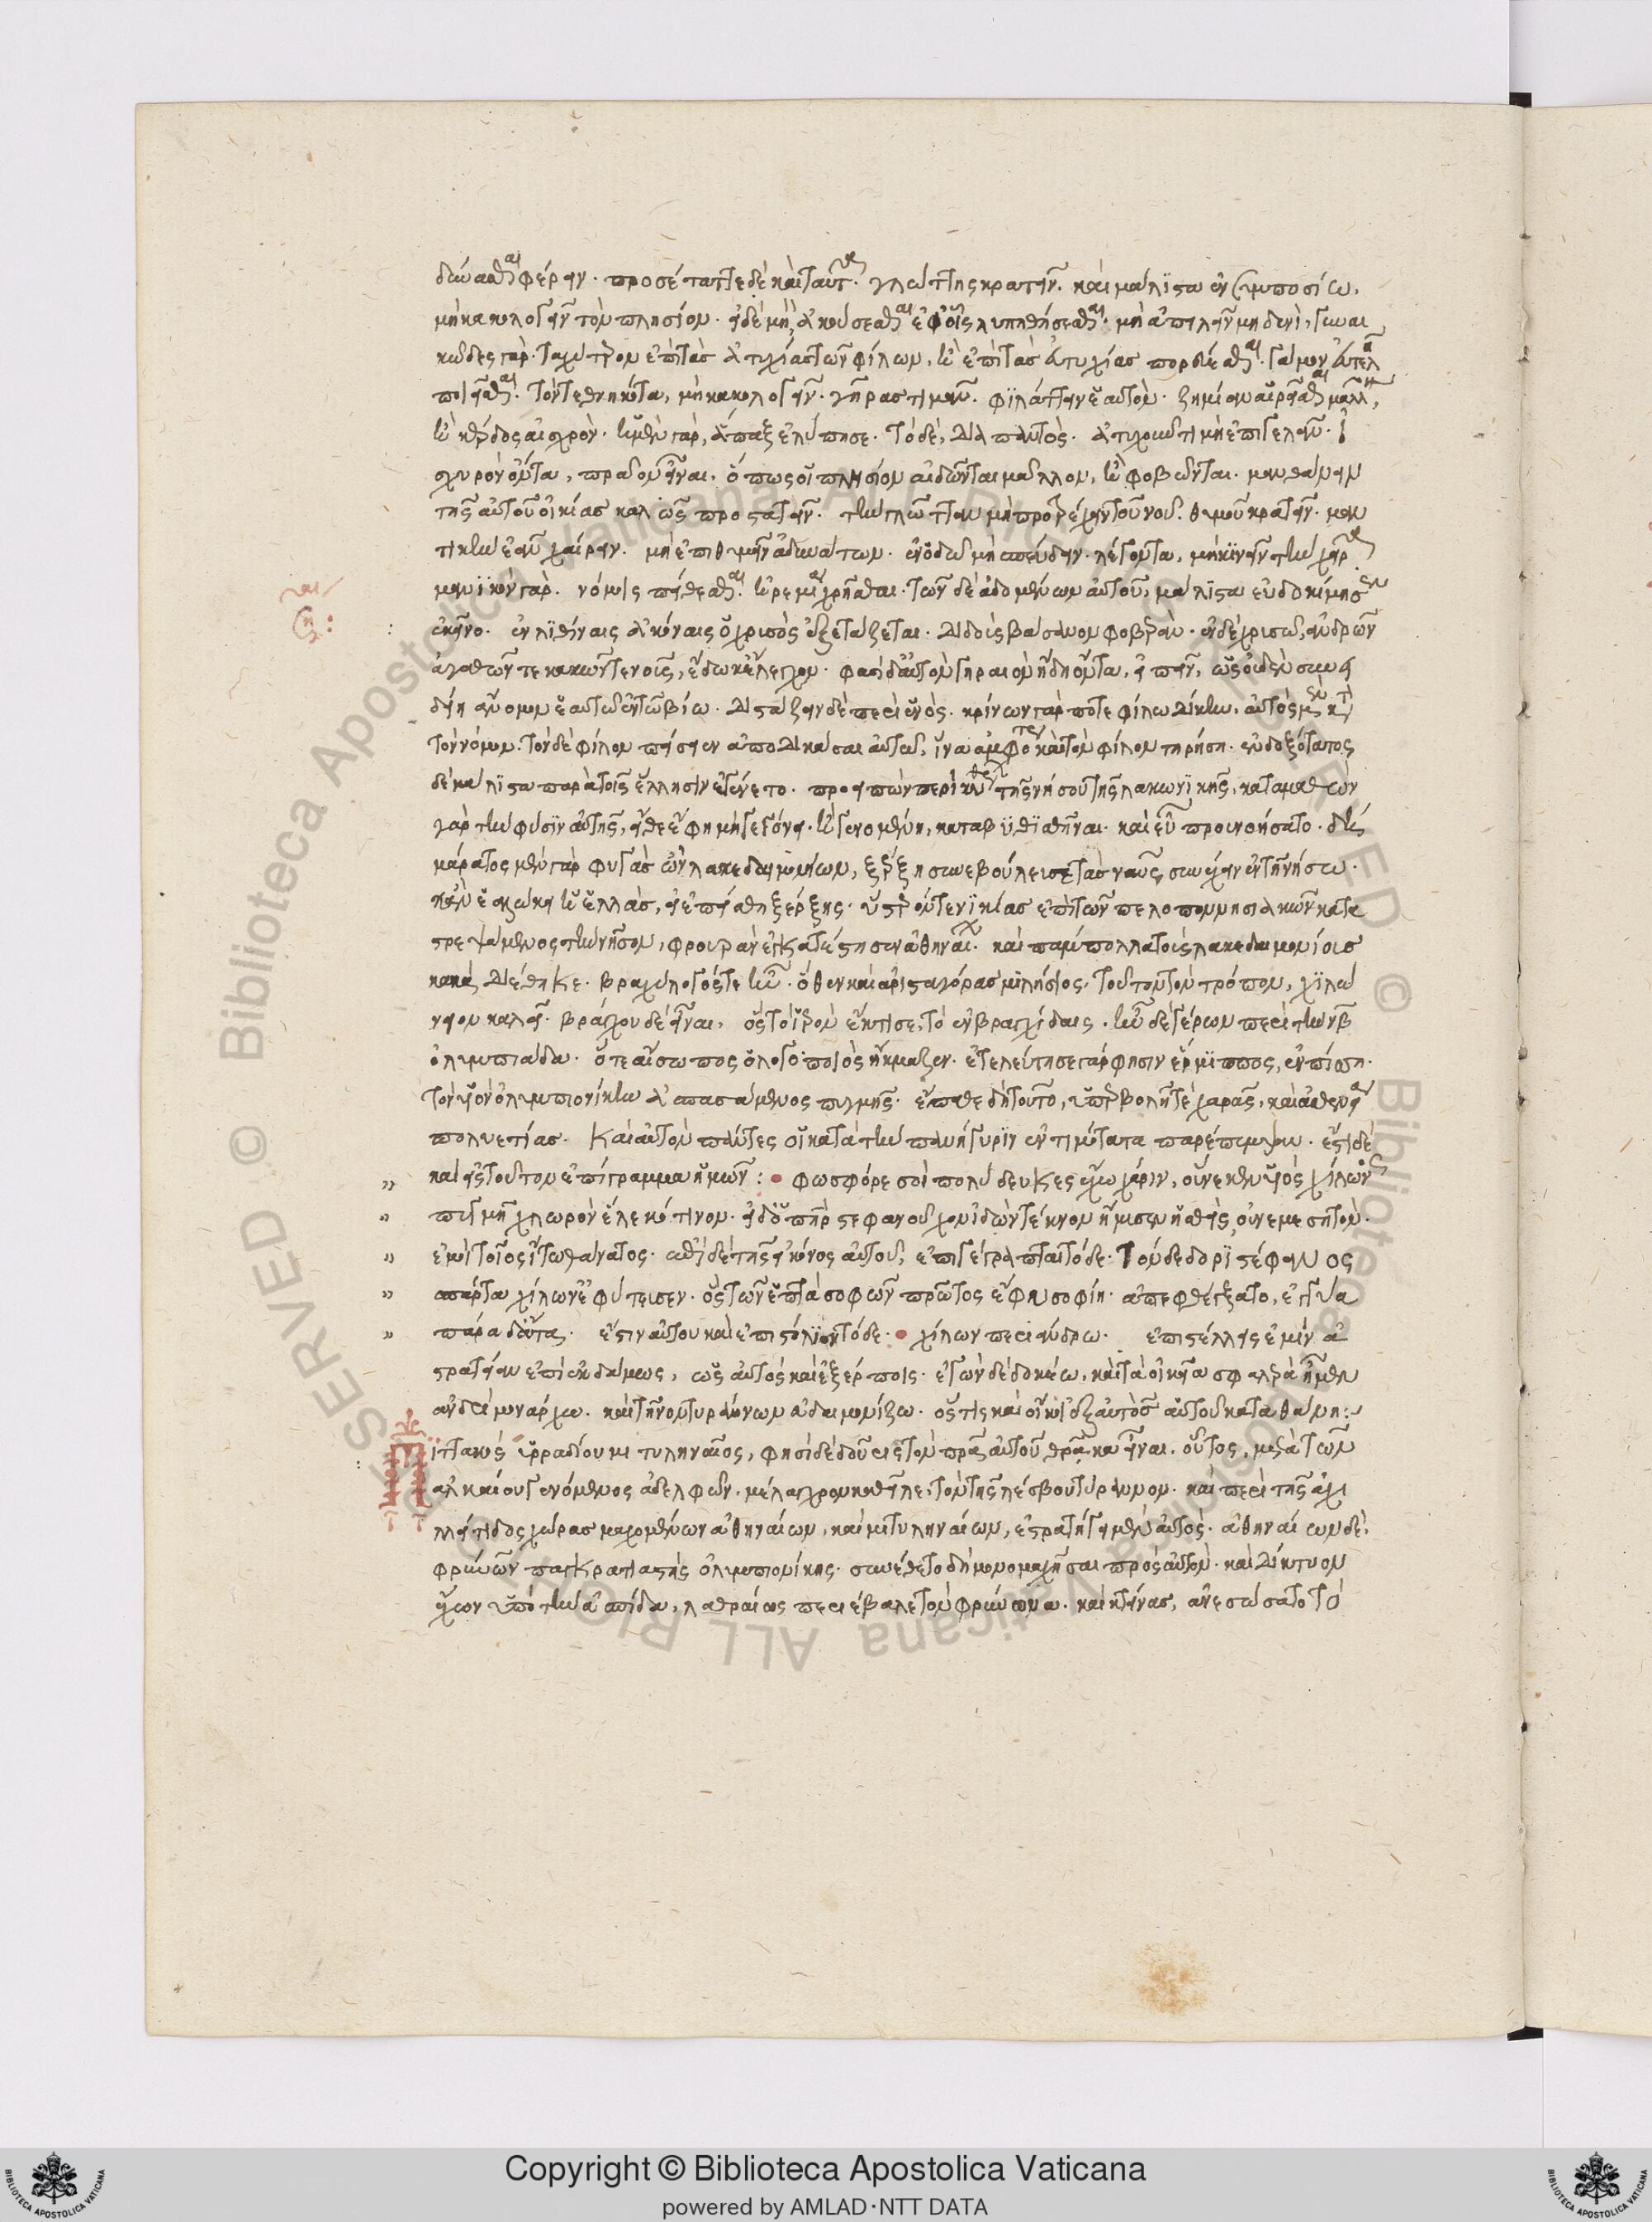 δύνασθαι φέρειν. προσέταττε δὲ καὶ ταῦτα. γλώττης κρατεῖν. καὶ μάλιστα ἐν συμποσίω.
μὴ κακολογεῖν τὸν πλησίον. εἰ δὲ μὴ, ἀκούσεσθαι ἐφ' οἷς λυπηθήσεσθαι. μὴ ἀπειλεῖν μηδενὶ, γυναι
κῶδες γάρ. ταχύτερον ἐπὶ τὰς ἀτυχίας τῶν φίλων, ἢ ἐπὶ τὰς εὐτυχίας πορεύεσθαι. γάμον εὐτελῆ
ποιεῖσθαι. τὸν τεθνηκότα, μὴ κακολογεῖν. γῆρας τιμᾶν. φυλάττειν ἑαυτόν. ζημίαν αἱρεῖσθαι μᾶλλον,
ἢ κέρδος αἰσχρόν. ἡ μὲν γὰρ, ἅπαξ ἐλύπησε. τὸ δὲ, διὰ παντός. ἀτυχοῦντι μὴ ἐπιγελᾶν. ἰ
σχυρὸν ὄντα, πρᾶον εἶναι, ὅπως οἱ πλησίον αἰδῶνται μᾶλλον, ἢ φοβῶνται. μανθάνειν
τῆς αὐτοῦ οἰκίας καλῶς προστατεῖν. τὴν γλῶτταν μὴ προτρέχειν τοῦ νοῦ. θυμοῦ κρατεῖν. μαν
τικὴν ἐᾶν χαίρειν. μὴ ἐπιθυμεῖν ἀδυνάτων. ἐν ὁδῶ μὴ σπεύδειν. λέγοντα, μὴ κινεῖν τὴν χεῖρα
μανικὸν γάρ. νόμοις πείθεσθαι. ἠρεμία χρῆσθαι. τῶν δὲ ἀδομένων αὐτοῦ, μάλιστα εὐδοκίμησεν
ἐκεῖνο. ἐν λιθίναις ἀκόναις ὁ χρυσὸς ἐξετάζεται. διδοὺς βάσανον φοβεράν. ἐν δὲ χρυσῶ, ἀνδρῶν
ἀγαθῶν τε κακῶν τε νοῦς, ἔδωκ' ἔλεγχον. φασὶ δ' αὐτὸν γηραιὸν ἤδη ὄντα, εἰπεῖν, ὡς οὐδὲν συνει
δείη ἄνομον ἑαυτῶ ἐν τῶ βίω. διστάζειν δὲ περὶ ἑνός. κρίνων γάρ ποτε φίλω δίκην, αὐτὸς μὲν κατὰ
τὸν νόμον. τὸν δὲ φίλον πείσειεν ἀποδικάσαι αὐτοῦ, ἵνα ἀμφότερα καὶ τὸν φίλον τηρήση. ἐνδοξότατος
δὲ μάλιστα παρὰ τοῖς ἕλλησιν ἐγένετο. προειπὼν περὶ κυθήρων τῆς νήσου τῆς λακωνικῆς. καταμαθὼν
γὰρ τὴν φύσιν αὐτῆς, εἴθε ἔφη μὴ γεγόνει. ἢ γενομένη, κατεβυθίσθηναι. καὶ εὖ προενοήσατο. δη
μάρατος μὲν γὰρ φυγὰς ὢν λακεδαιμονίων, ξέρξη συνεβούλευσε τὰς ναῦς συνέχειν ἐν τῆ νήσω.
κἂν ἑαλώκει ἡ ἑλλὰς, εἰ ἐπείσθη ξέρξης. ὕστερόν τε νικίας ἐπὶ τῶν πελοποννησιακῶν κατα
στρεψάμενος τὴν νῆσον, φρουρὰν ἐγκατέστησεν ἀθηναίων. καὶ πάμπολλα τοὺς λακεδαιμονίους
κακὰ διέθηκε. βραχυλόγος τε ἦν. ὅθεν καὶ ἀρισταγόρας μιλήσιος. τοῦτον τὸν τρόπον, χιλώ
νειον καλεῖ. βράγχου δὲ εἶναι, ὃς τὸ ἱερὸν ἔκτισε, τὸ ἐν βραγχίδαις. ἦν δὲ γέρων περὶ τὴν νβ
ὀλυμπιάδα. ὅτε αἴσωπος ὁ λογοποιὸς ἤκμαζεν. ἐτελεύτησε γάρ φησιν ἕρμιππος, ἐν πίση.
τὸν υἱὸν ὀλυμπιονίκην ἀσπασάμενος πυγμῆς. ἔπαθε δὴ τοῦτο, ὑπερβολῆ τε χαρᾶς, καὶ ἀσθενεία
πολυετίας. καὶ αὐτὸν πάντες οἱ κατὰ τὴν πανήγυριν ἐντιμότατα παρέπεμψαν. ἔστι δὲ
„ καὶ εἰς τοῦτον ἐπίγραμμα ἡμῶν: φωσφόρε σοὶ πολύδευκες ἔχω χάριν, οὕνεκεν υἱὸς χίλωνος
„ πυγμῆ χλωρὸν ἕλε κότινον. εἰ δ' ὁ πατὴρ στεφανοῦχον ἰδὼν τέκνον ἤμυσεν ἡσθεὶς, οὐ νεμεσητόν.
„ ἐμοὶ τοῖος ἴτω θάνατος. ἐπὶ δὲ τῆς εἰκόνος αὐτοῦ, ἐπιγέγραπται τόδε. τόνδε δοριστέφανος
„ σπάρτα χίλων' ἐφύτευσεν. ὃς τῶν ἑπτὰ σοφῶν πρῶτος ἔφυ σοφίη. ἀπεφθέγξατο, ἐγγύα
„ πάρα δ' ἄτα. ἔστιν αὐτοῦ καὶ ἐπιστόλιον τόδε. χίλων περιάνδρω. ἐπιστέλλεις ἐμὶν ἀ
στρατείαν ἐπὶ ἐκδάμως, ὡς αὐτὸς καὶ ἐξέρποις. ἐγὼν δὲ δοκέω, καὶ τὰ οἰκεῖα σφαλρὰ εἶμεν
ἀνδρὶ μονάρχω. καὶ τῆνον τυράννων εὐδαιμονίζω. ὅστις καὶ οἴκοι ἐξ αὐτὸς αὐτοῦ κατα θάνη:
Πιττακὸς ὑρραδίου μιτυληναῖος, φησὶ δὲ δοῦρις τὸν πατέρα αὐτοῦ θρᾶκα εἶναι. οὗτος, μετὰ τῶν
ἀλκαίου γενόμενος ἀδελφῶν. μέλαγχρον καθεῖλε, τὸν τῆς λέσβου τύραννον. καὶ περὶ τῆς ἀχι
λλείτιδος χώρας μαχομένων ἀθηναίων, καὶ μιτυληναίων, ἐστρατήγει μὲν αὐτός. ἀθηναίων δὲ,
φρύνων παγκρατιαστὴς ὀλυμπιονίκης. συνέθετο δὴ μονομαχῆσαι πρὸς αὐτόν. καὶ δίκτυον
ἔχων ὑπὸ τὴν ἀσπίδα, λαθραίως περιέβαλε τὸν φρύνωνα. καὶ κτείνας, ἀνεσώσατο τὸ
Copyright © Biblioteca Apostolica Vaticana
powered by AMLAD·NTT DATA